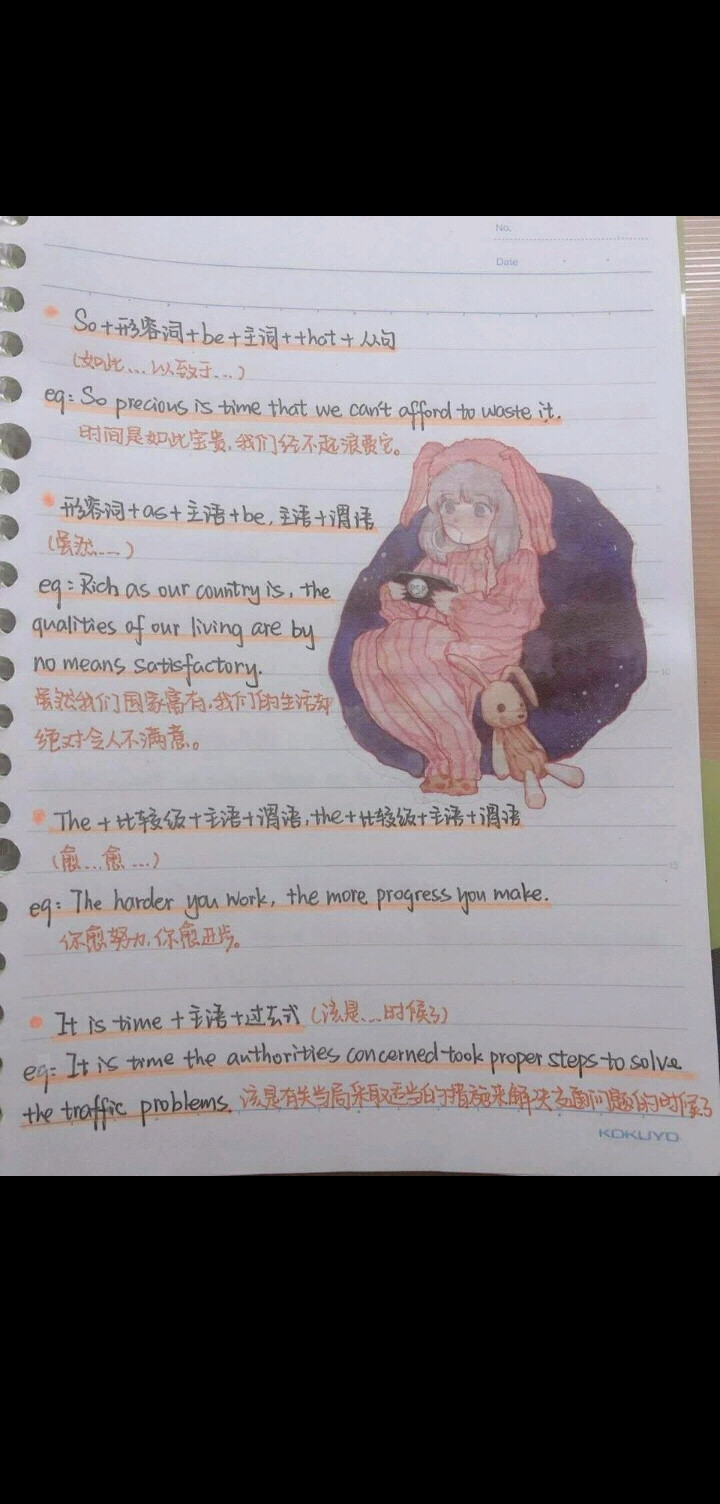 No.
Date
So+形容词+be+主词+that+从句
(如此...以致于...)
eg: So precious is time that we can't afford to waste it.
时间是如此宝贵,我们经不起浪费它。
形容词+as+主语+be,主语+谓语
(虽然...)
eg: Rich as our country is, the
qualities of our living are by
no means satisfactory.
虽然我们国家富有,我们的生活却
绝对令人不满意。
The+比较级+主语+谓语,the+比较级+主语+谓语
(愈...愈...)
eg: The harder you work, the more progress you make.
你愈努力,你愈进步。
It is time+主语+过去式(该是...时候了)
eg: It is time the authorities concerned took proper steps to solve
the traffic problems.该是有关当局采取适当的措施来解决交通问题的时候了
KOKUYO
5
10
15